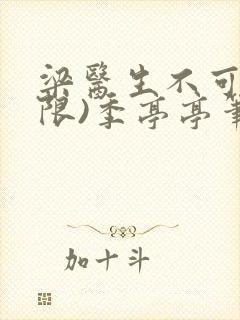 梁醫生不可
限)季亭亭筆
加十斗